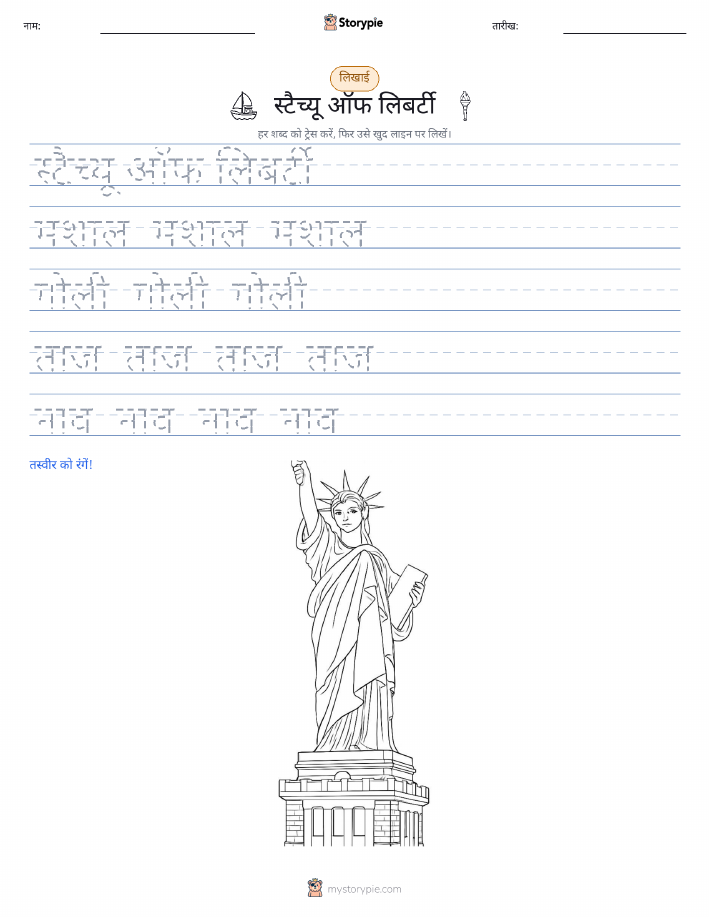 नाम:
Storypie
तारीख:
लिखाई
स्टैच्यू ऑफ लिबर्टी
हर शब्द को ट्रेस करें, फिर उसे खुद लाइन पर लिखें।
स्टैच्यू ऑफ लिबर्टी
मशाल मशाल मशाल
गोली गोली गोली
ताज ताज ताज ताज
नाव नाव नाव नाव
तस्वीर को रंगें!
mystorypie.com